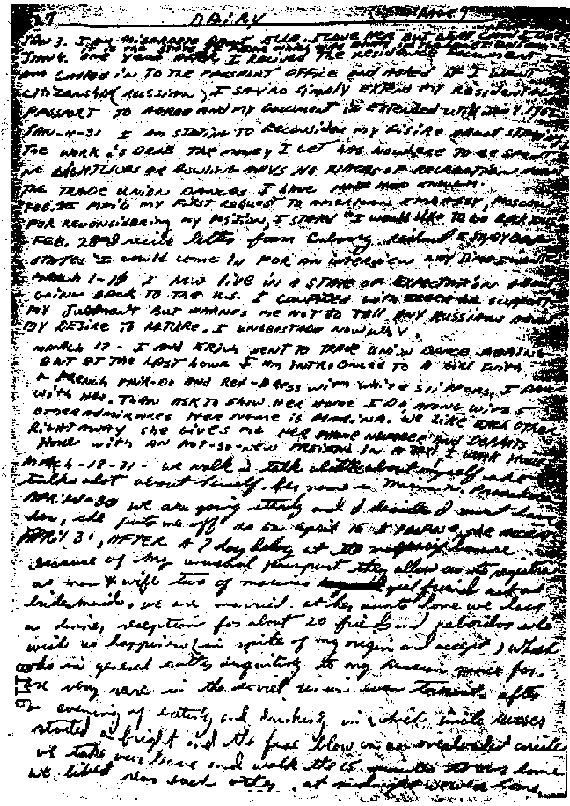 DAIRY
JAN 3. I am miserable about Ella. I love her but what can I do?
JAN 4. one year after I recived the residence document I
am called in to the passport office and asked if I want
citizenship (Russian) I say no simply extend my residental
passport to agree and my document is extended until Jan 4, 1962
JAN-4-31 I am stating to reconsider my disire about staying
The work is drab The money I get has nowhere to be spent
no nightclubs or bowling allys no places of recreation
The trade union dances I have had enough.
FEB. 1st my first request to American Embassy, Moscow
for reconsidering my position, I stated "I would like to go back
Feb. 28th I recive letter from Embassy.
stated I could come in for an interview any time
March 1-16 I now live in a state of expectation about
going back to the U.S. I confided with
my judgment but warnes me not to tell any Russians about
my desire to reture. I understade now why.
March 17 - I and Erich went to trade union dance. Boring
but at the last hour I am introduced to a girl with
a French hair-do and red-dress with white slipper I dance
with her. Then ask to show her home I do, along with 5
other admirares Her name is Marina. We like each other
right away she gives me her phone number and departs
home with an not-so-new freiend in a taxi, I walk home
March-18-31 - we walk I talk a little about myself she
talks alot about herself. her name is Marina
APR: 1st-30 we are going steady and I decide I must have
her, she puts me off so on April 15 I propose, she accepts
APRIL 31, after a 7 day delay at the marraige beaure
because of my unusual passport they allow us to registra
as man & wife two of Marinas girl friends act as
bridesmaids. we are married. at her aunts home we have
a dinner reception for about 20 friends and neboribos who
wish us happiness (in spite of my origin and accept) which
was in general rather disquiting to any Russian since for.
are very rare in the soviet union even tourist. after
an evening of eating and drinking in which uncle
started a fright and the fuse blow on an overloaded circite
we take our leave and walk the 15 minutes to our home.
we lived near each other, at midnight we were home